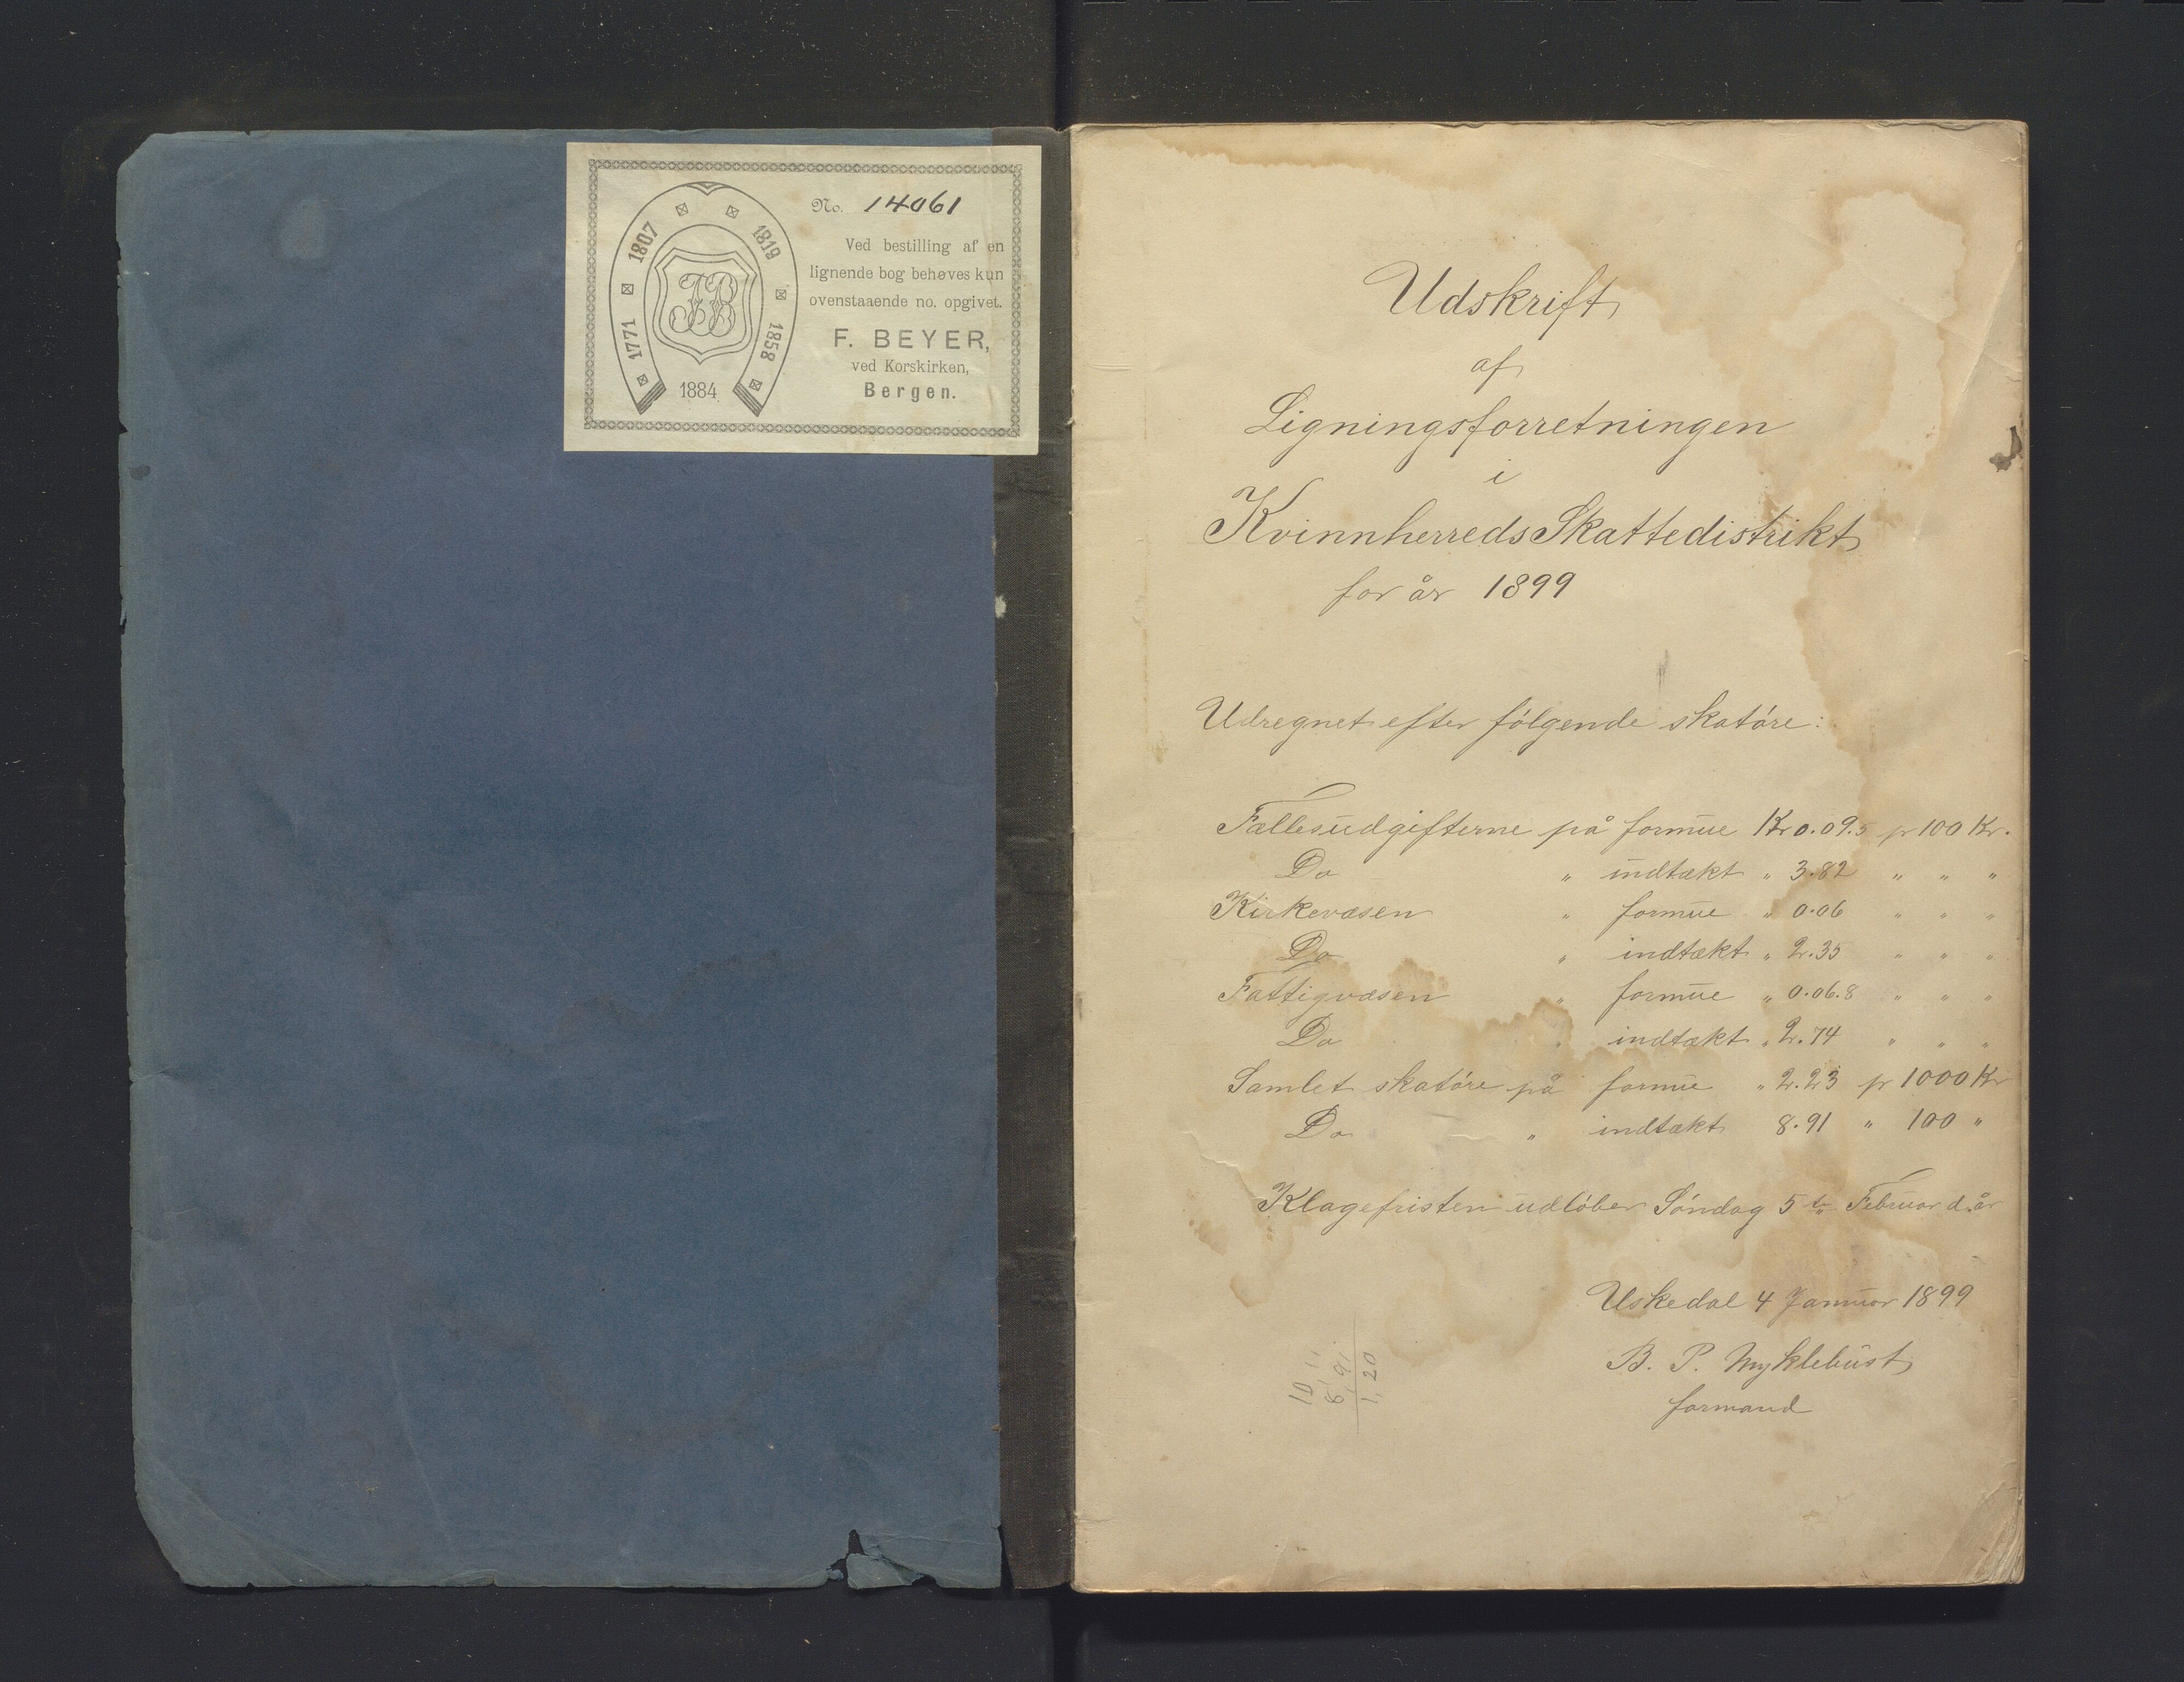 No. 14061
Ved bestilling af en
lignende bog behøves kun
ovenstaaende no. opgivet.
F. BEYER,
ved Korskirken,
Bergen.
1771 1807 1819 1858
1884
FB
Udskrift
af
Ligningsforretningen
i
Kvinnherreds Skattedistrikt
for år 1899
Udregnet efter følgende skatøre:
Fællesudgifterne på formue Kr 0.09.5 pr 100 Kr.
Do " indtækt " 3.82 " " "
Kirkevæsen " formue " 0.06 " " "
Do " indtækt " 2.35 " " "
Fattigvæsen " formue " 0.06.8 " " "
Do " indtækt " 2.74 " " "
Samlet skatøre på formue " 2.23 pr 1000 Kr
Do " indtækt 8.91 " 100 "
Klagefristen udløber Søndag 5te Februar d. år
Uskedal 4 Januar 1899
B. P. Myklebust
formand
10 11
8,91
1,20